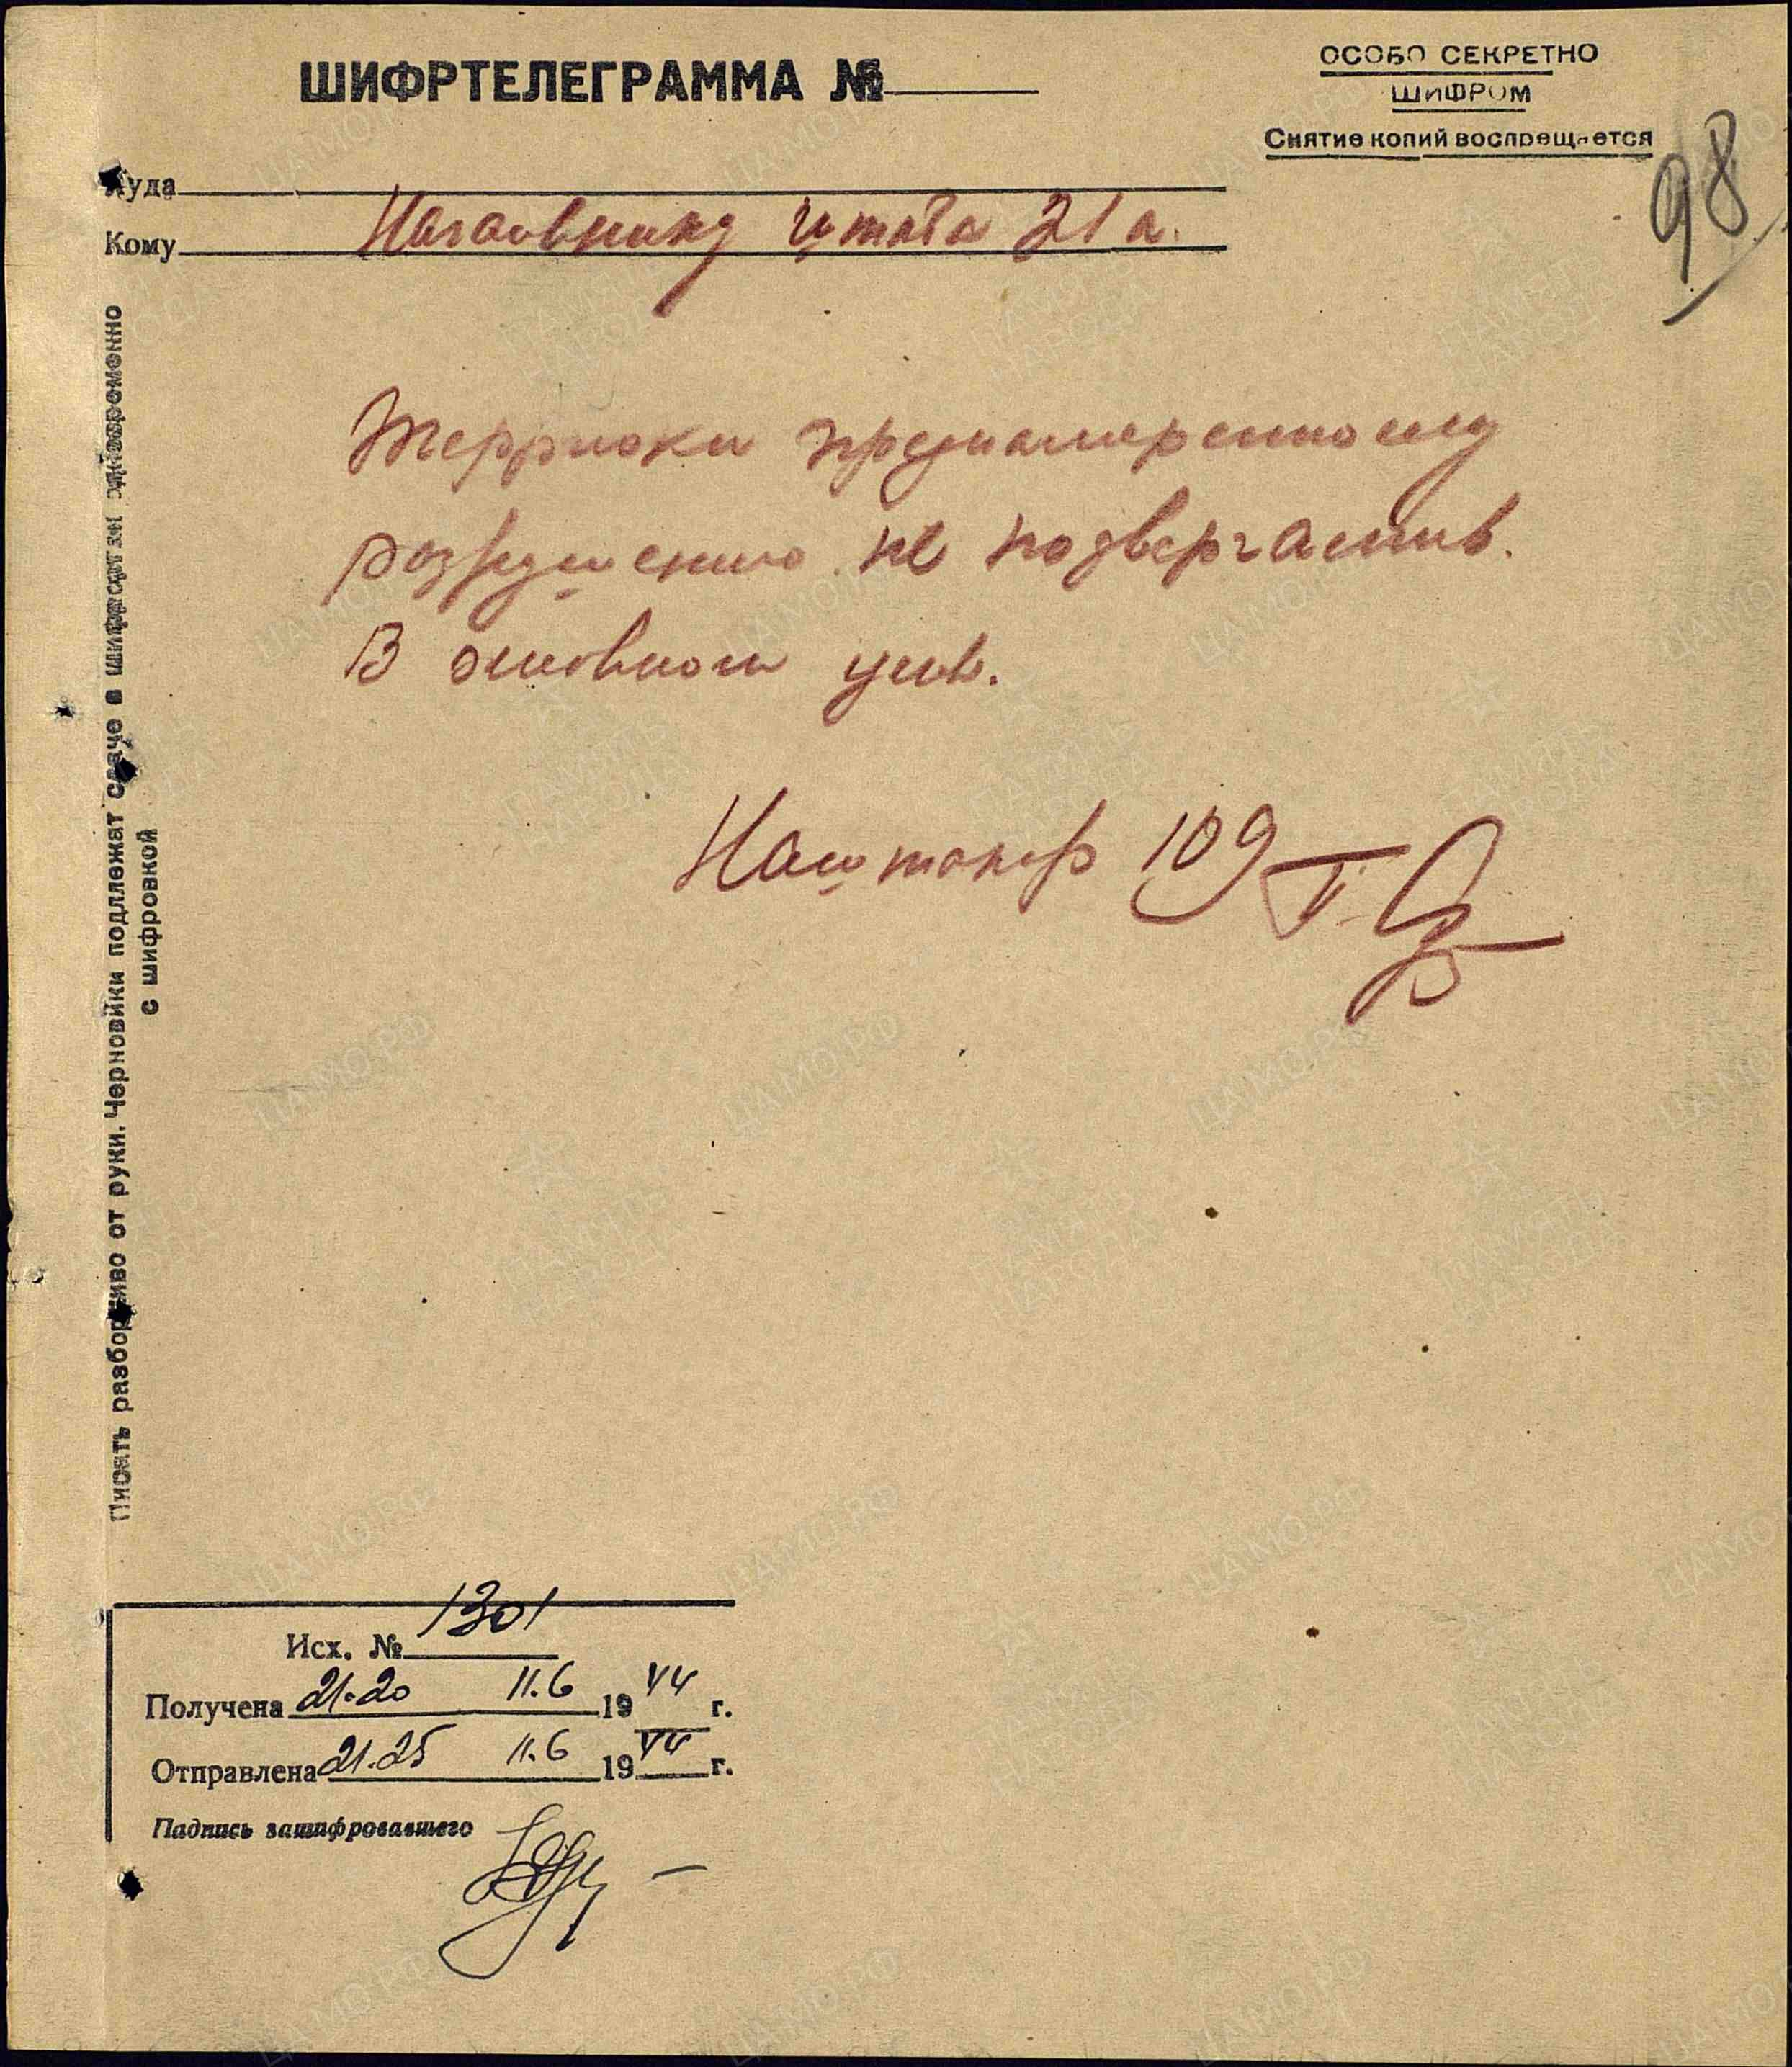 ШИФРТЕЛЕГРАММА №
ОСОБО СЕКРЕТНО
ШИФРОМ
Снятие копий воспрещается
98
Куда
Кому Начальнику штаба 21 а.
Терриоки преднамеренному
разрушению не подвергались.
В основном целы.
Наштакор 109
Писать разборчиво от руки. Черновики подлежат сдаче в шифрорган одновременно
с шифровкой
Исх. № 1301
Получена 21.20 11.6 1944 г.
Отправлена 21.25 11.6 1944 г.
Падпись зашифровавшего
ЦАМО.РФ
ПАМЯТЬ
НАРОДА